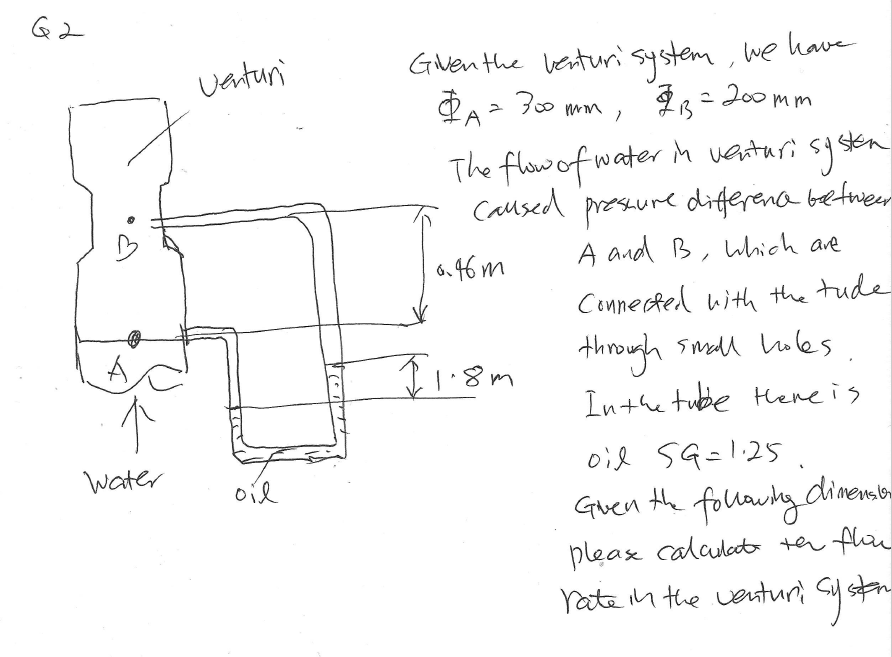 Q2
Venturi
B
A
Water
oil
0.46m
1.8m
Given the venturi system, we have
ΦA = 300 mm, ΦB = 200mm
The flow of water in venturi system
caused pressure difference between
A and B, which are
connected with the tude
through small holes.
In the tube there is
oil SG=1.25.
Given the following dimension
please calculate ter flow
rate in the venturi system